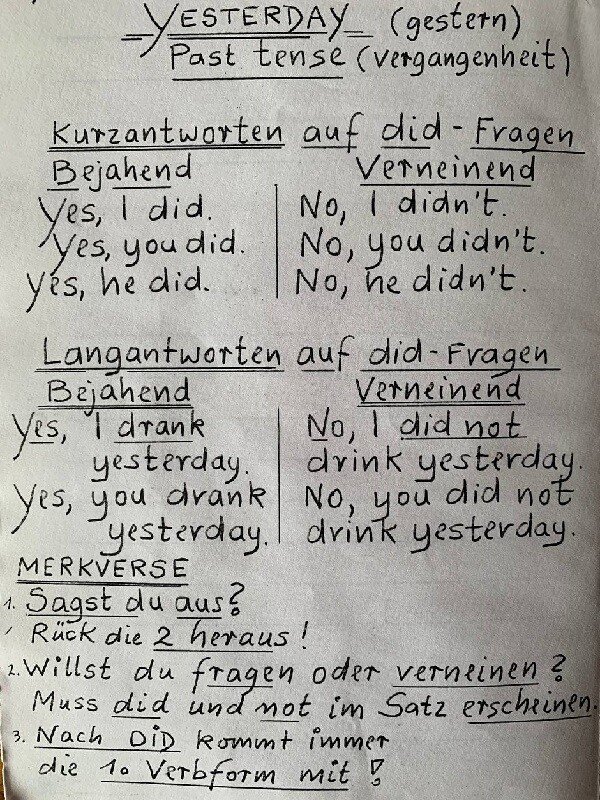 YESTERDAY (gestern)
Past tense (vergangenheit)
Kurzantworten auf did-Fragen
Bejahend Verneinend
Yes, I did. No, I didn't.
Yes, you did. No, you didn't.
Yes, he did. No, he didn't.
Langantworten auf did-Fragen
Bejahend Verneinend
Yes, I drank No, I did not
yesterday. drink yesterday.
Yes, you drank No, you did not
yesterday. drink yesterday.
MERKVERSE
1. Sagst du aus?
Rück die 2 heraus!
2. Willst du fragen oder verneinen?
Muss did und not im Satz erscheinen.
3. Nach DID kommt immer
die 1. Verbform mit!